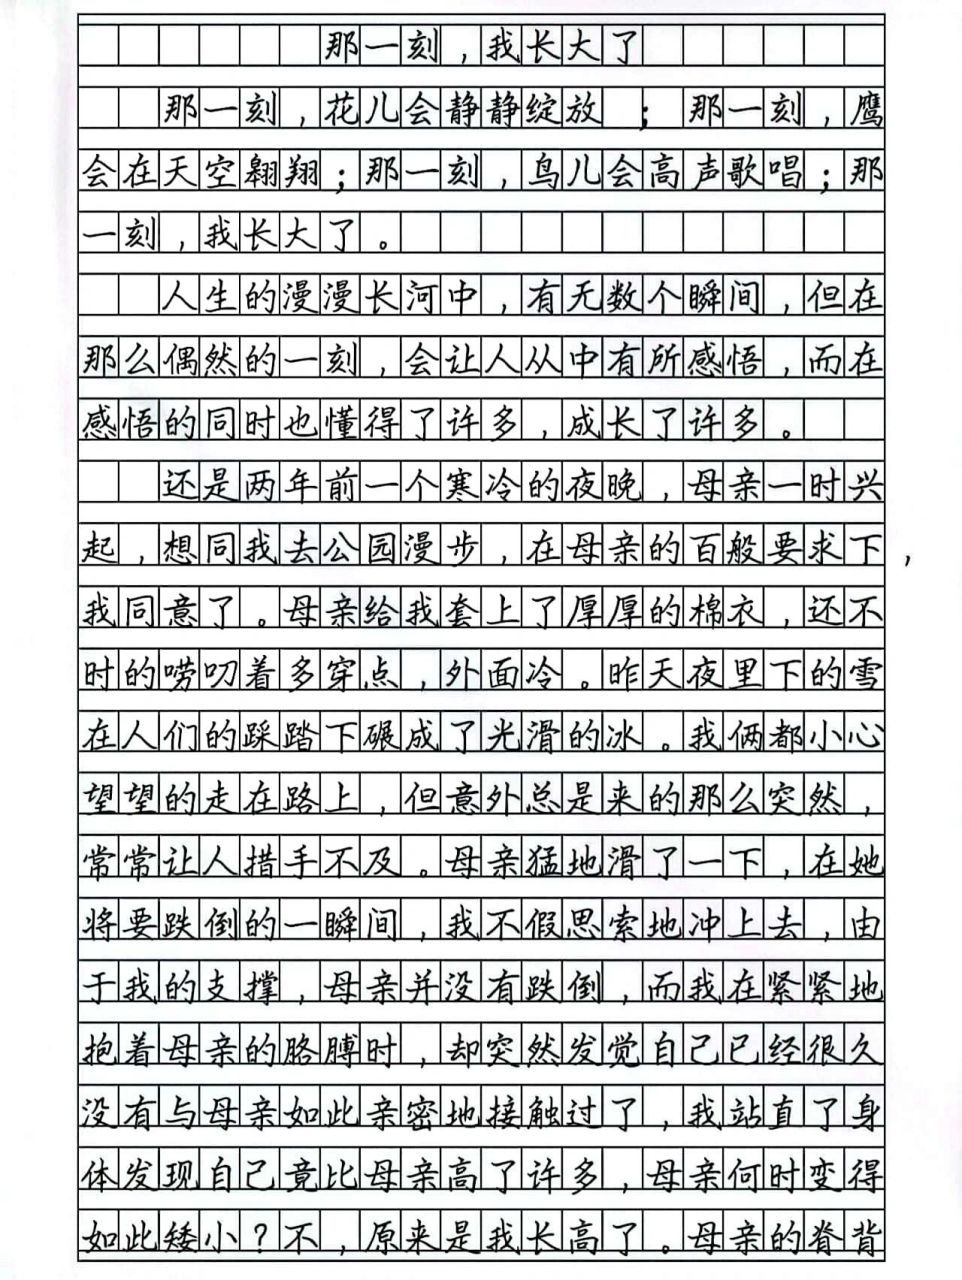 那一刻，我长大了
那一刻，花儿会静静绽放；那一刻，鹰
会在天空翱翔；那一刻，鸟儿会高声歌唱；那
一刻，我长大了。
人生的漫漫长河中，有无数个瞬间，但在
那么偶然的一刻，会让人从中有所感悟，而在
感悟的同时也懂得了许多，成长了许多。
还是两年前一个寒冷的夜晚，母亲一时兴
起，想同我去公园漫步，在母亲的百般要求下，
我同意了。母亲给我套上了厚厚的棉衣，还不
时的唠叨着多穿点，外面冷。昨天夜里下的雪
在人们的踩踏下碾成了光滑的冰。我俩都小心
望望的走在路上，但意外总是来的那么突然，
常常让人措手不及。母亲猛地滑了一下，在她
将要跌倒的一瞬间，我不假思索地冲上去，由
于我的支撑，母亲并没有跌倒，而我在紧紧地
抱着母亲的胳膊时，却突然发觉自己已经很久
没有与母亲如此亲密地接触过了，我站直了身
体发现自己竟比母亲高了许多，母亲何时变得
如此矮小？不，原来是我长高了。母亲的脊背